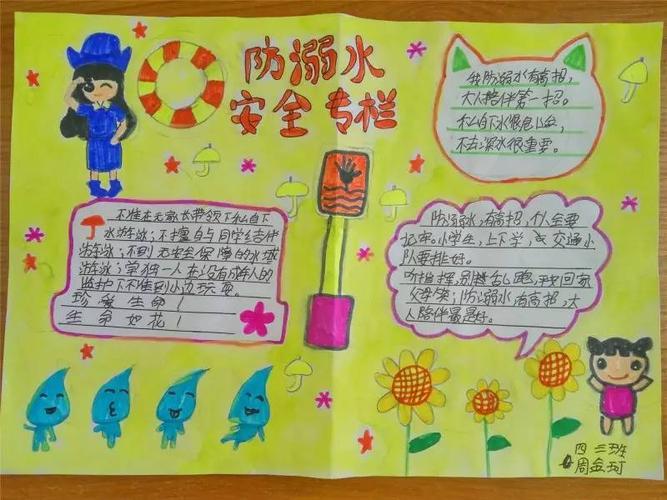 防溺水
安全专栏
我防溺水有高招,
大人陪伴第一招。
私自下水很危险,
不去深水很重要。
不准在无家长带领下私自下
水游泳;不擅自与同学结伴
游泳;不到无安全保障的水域
游泳;单独一人在没有成年人的
监护下不准到小边玩耍
珍爱生命!
生命如花!
防溺水,有高招,
记牢。小学生,上下学,
队要排好。
听指挥,别乱跑,
防溺水有高招,大
人陪伴最是好。
四三班
周金珂